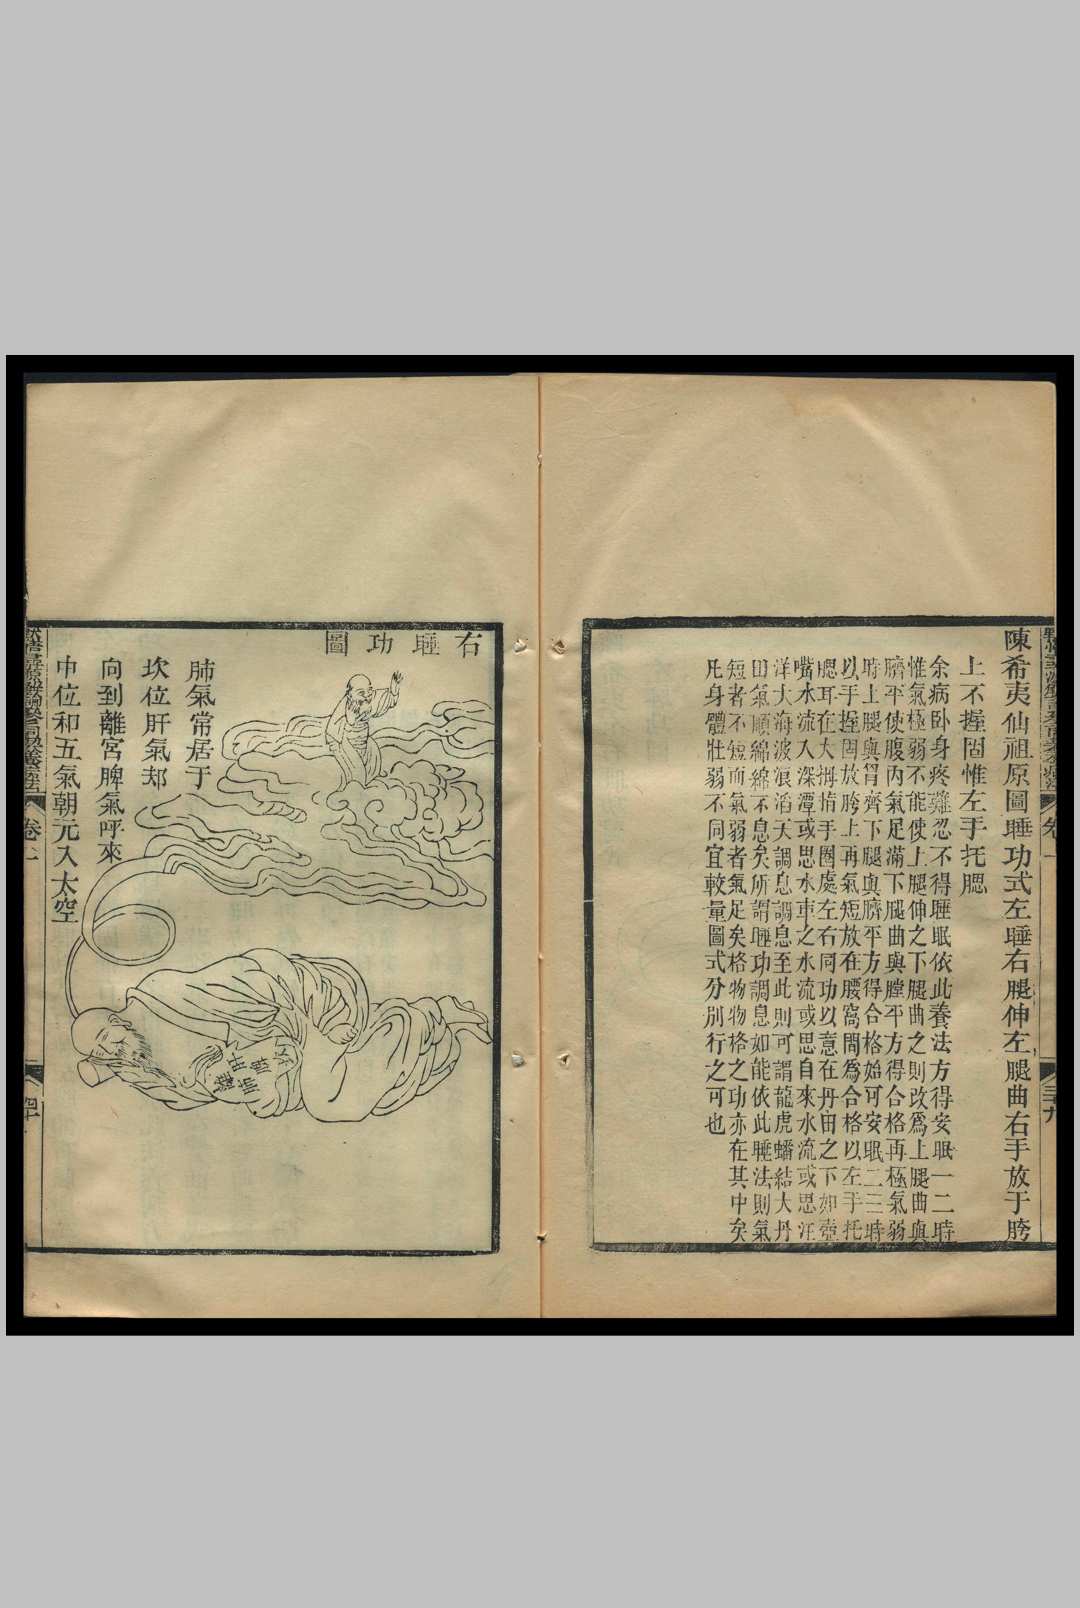 陳希夷仙祖原圖睡功式左睡右腿伸左腿曲右手放于胯
上不握固惟左手托腮
余病卧身疼難忍不得睡眠依此養法方得安眠一二時
惟氣極弱不能使上腿伸之下腿曲之則改爲上腿曲與
臍平使腹內氣足滿下腿曲與膛平方得合格再極氣弱
時上腿與胃齊下腿與臍平方得合格始可安眠二三時
以手握固放胯上再氣短放在腰窩間爲合格以左手托
腮耳在大拇指手圈處左右同功以意在丹田之下如壺
嘴水流入深潭或思水車之水流或思自來水流或思汪
洋大海波浪滔天調息調息至此則可謂龍虎蟠結大丹
田氣順綿綿不息矣所謂睡功調息如能依此睡法則氣
短者不短而氣弱者氣足矣格物物格之功亦在其中矣
凡身體壯弱不同宜較量圖式分別行之可也
卷一
三十九
右睡功圖
肺氣常居于
坎位肝氣却
向到離宮脾氣呼來
中位和五氣朝元入太空
卷一
四十